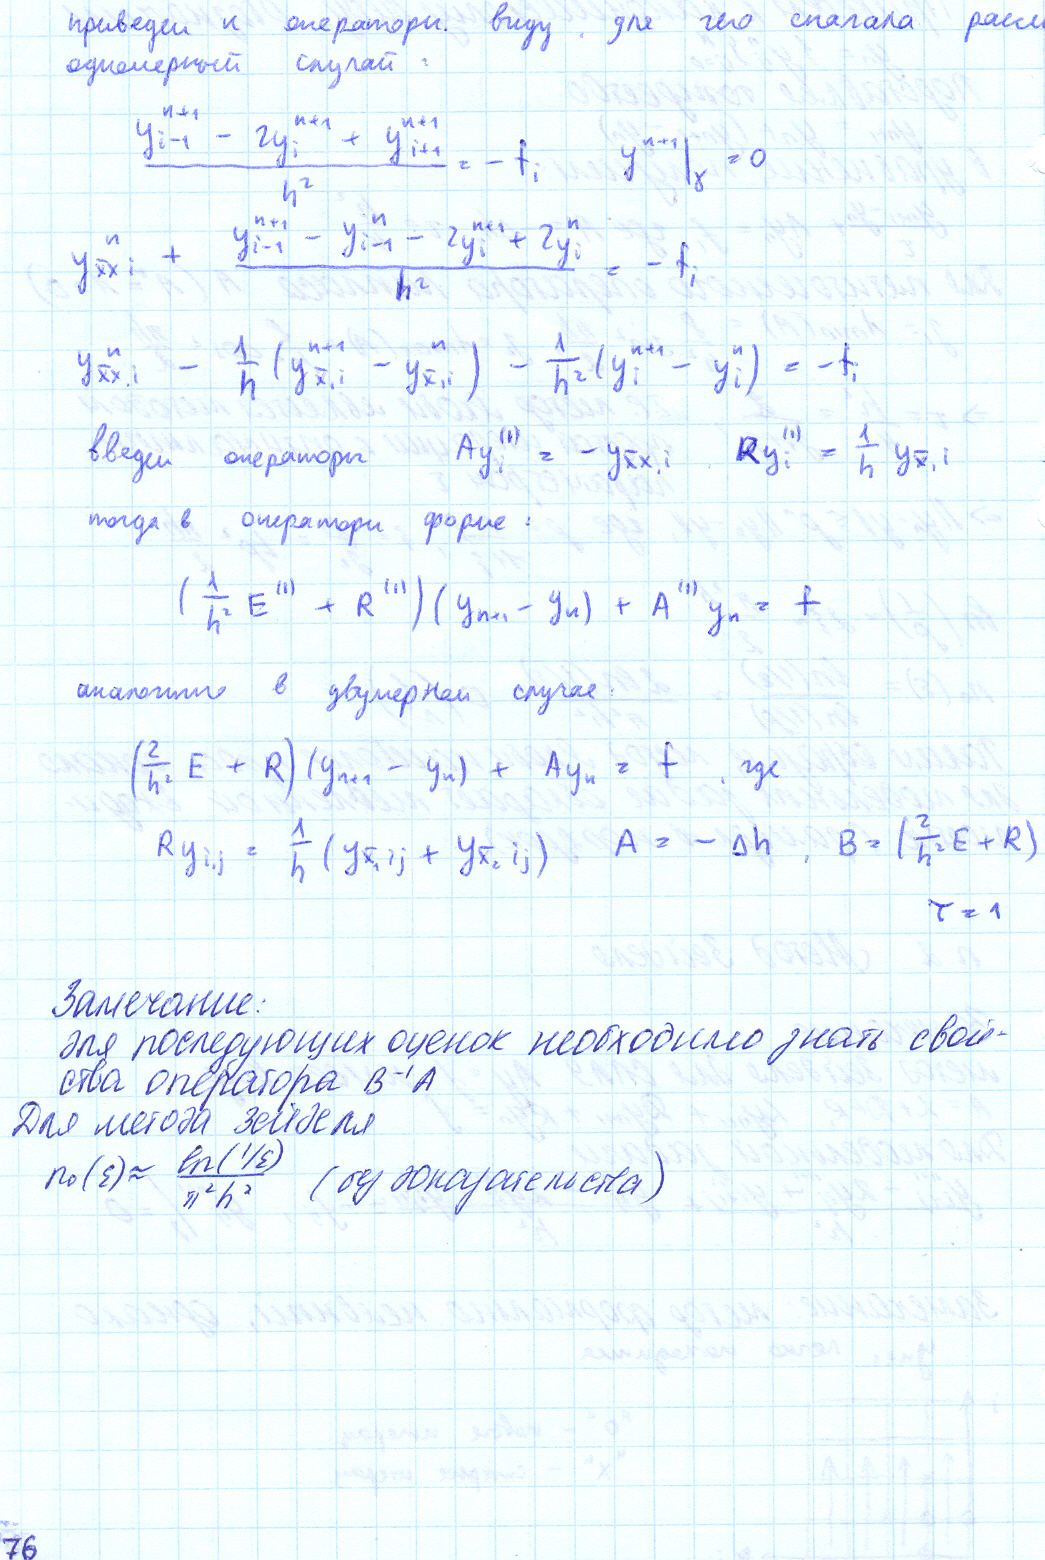 приведем к операторн. виду, для чего сначала рассм
одномерный случай:
(y_{i-1}^{n+1} - 2y_i^{n+1} + y_{i+1}^{n+1}) / h² = -f_i    y^{n+1}|_γ = 0
y_{x̄x,i}^n + (y_{i-1}^{n+1} - y_{i-1}^n - 2y_i^{n+1} + 2y_i^n) / h² = -f_i
y_{x̄x,i}^n - 1/h (y_{x̄,i}^{n+1} - y_{x̄,i}^n) - 1/h² (y_i^{n+1} - y_i^n) = -f_i
введем операторы    Ay_i^{(1)} = -y_{x̄x,i} , Ry_i^{(1)} = 1/h y_{x̄,i}
тогда в операторн форме:
(1/h² E^{(1)} + R^{(1)})(y_{n+1} - y_n) + A^{(1)} y_n = f
аналогично в двумерном случае:
(2/h² E + R)(y_{n+1} - y_n) + Ay_n = f , где
Ry_{i,j} = 1/h (y_{x̄₁ij} + y_{x̄₂ij})    A = -Δh , B = (2/h² E + R)
τ = 1
Замечание:
для последующих оценок необходимо знать свой-
ства оператора B⁻¹A
Для метода Зейделя
n₀(ε) ≈ ln(1/ε) / π²h² (без доказательства)
76